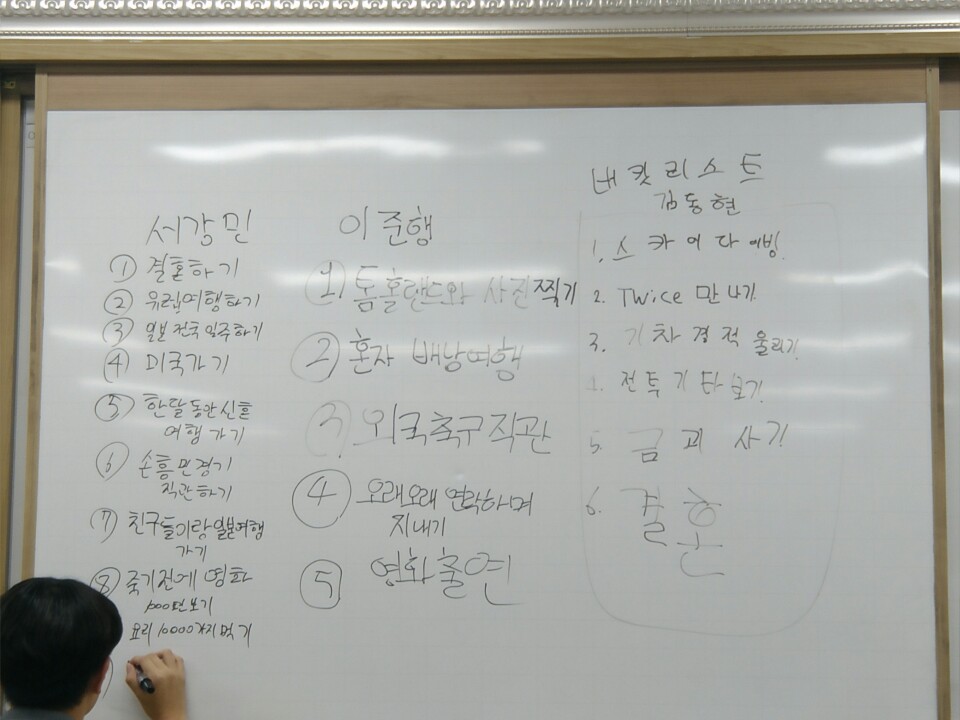 서강민
① 결혼하기
② 유럽여행하기
③ 일본 전국 일주하기
④ 미국가기
⑤ 한달동안 신혼
여행 가기
⑥ 손흥민경기
직관하기
⑦ 친구들이랑 일본여행
가기
⑧ 죽기전에 영화
1000편보기
요리 10000가지 먹기
이준행
① 톰홀랜드와 사진찍기
② 혼자 배낭여행
③ 외국축구직관
④ 오래오래 연락하며
지내기
⑤ 영화출연
버킷리스트
김동현
1. 스카이다이빙
2. Twice 만나기
3. 기차경적 울리기
4. 전투기 타보기
5. 금괴 사기
6. 결혼